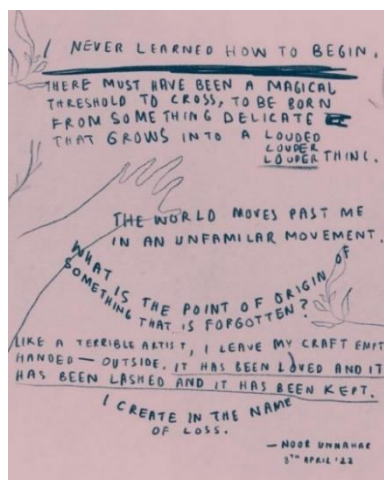 I NEVER LEARNED HOW TO BEGIN.
THERE MUST HAVE BEEN A MAGICAL
THRESHOLD TO CROSS, TO BE BORN
FROM SOMETHING DELICATE
THAT GROWS INTO A LOUDED
LOUDER
LOUDER THING.
THE WORLD MOVES PAST ME
IN AN UNFAMILAR MOVEMENT.
WHAT IS THE POINT OF ORIGIN OF
SOMETHING THAT IS FORGOTTEN?
LIKE A TERRIBLE ARTIST, I LEAVE MY CRAFT EMPT
HANDED — OUTSIDE. IT HAS BEEN LOVED AND IT
HAS BEEN LASHED AND IT HAS BEEN KEPT.
I CREATE IN THE NAME
OF LOSS.
— NOOR UNNAHAR